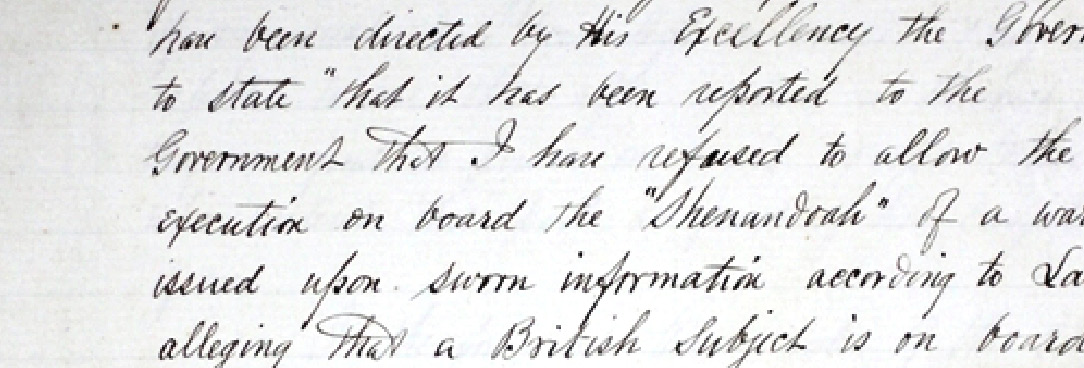 have been directed by His Excellency the Govern
to state "that it has been reported to the
Government that I have refused to allow the
execution on board the "Shenandoah" of a war
issued upon sworn information according to La
alleging that a British Subject is on board